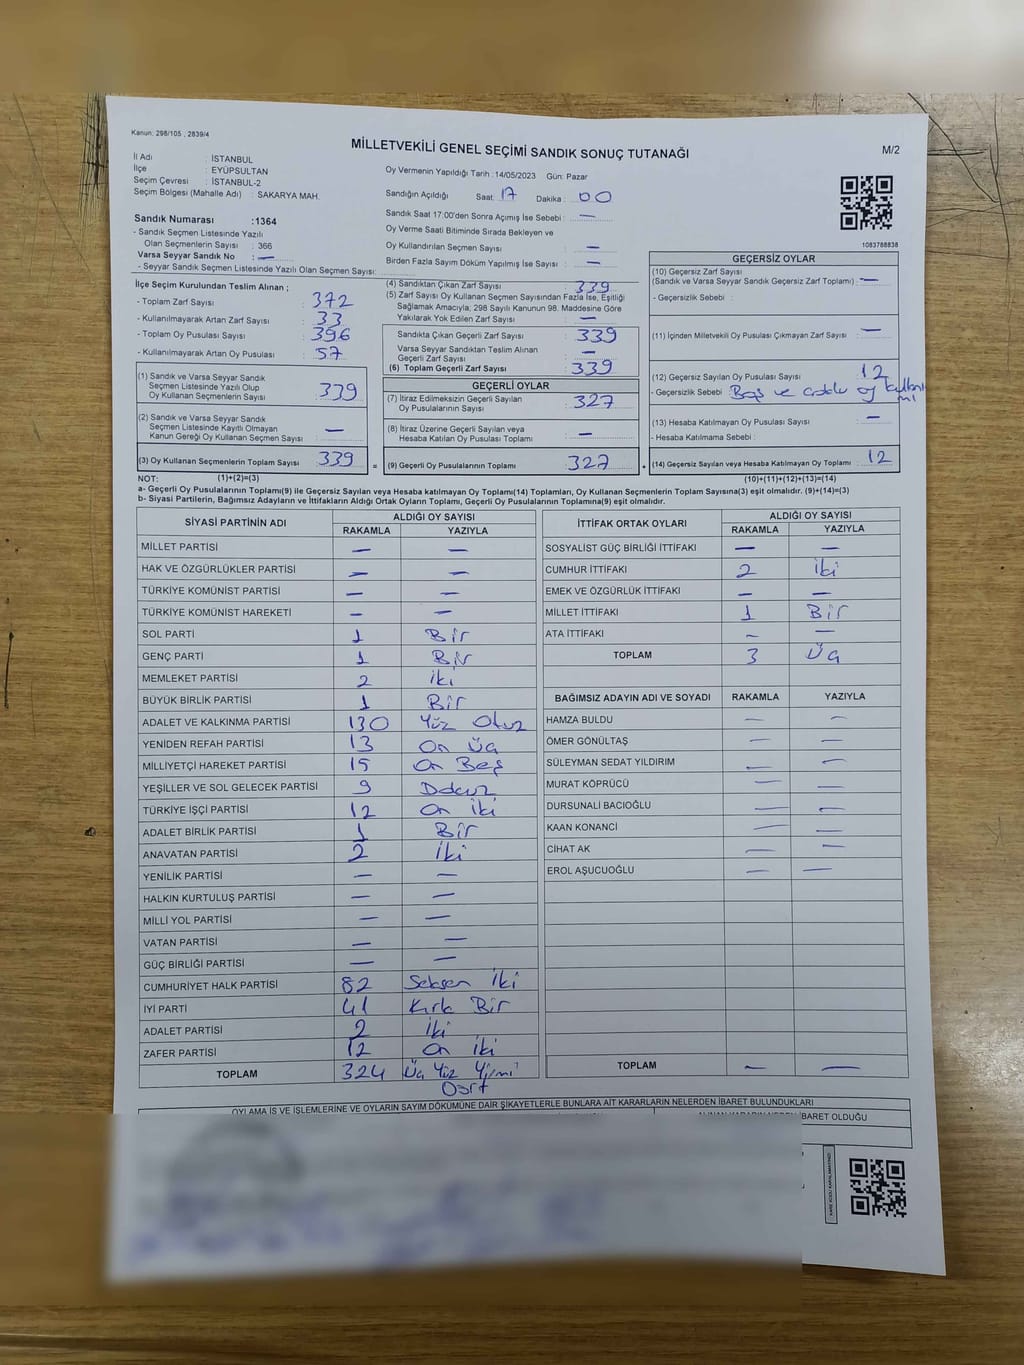 Kanun: 298/105 , 2839/4
MİLLETVEKİLİ GENEL SEÇİMİ SANDIK SONUÇ TUTANAĞI
M/2
İl Adı : İSTANBUL
İlçe : EYÜPSULTAN
Seçim Çevresi : İSTANBUL-2
Seçim Bölgesi (Mahalle Adı) : SAKARYA MAH.
Sandık Numarası :1364
- Sandık Seçmen Listesinde Yazılı
Olan Seçmenlerin Sayısı : 366
Varsa Seyyar Sandık No : —
- Seyyar Sandık Seçmen Listesinde Yazılı Olan Seçmen Sayısı:
Oy Vermenin Yapıldığı Tarih :14/05/2023 Gün: Pazar
Sandığın Açıldığı Saat: 17 Dakika : 00
Sandık Saat 17:00'den Sonra Açılmış İse Sebebi : —
Oy Verme Saati Bitiminde Sırada Bekleyen ve
Oy Kullandırılan Seçmen Sayısı —
Birden Fazla Sayım Döküm Yapılmış İse Sayısı : —
1083788838
İlçe Seçim Kurulundan Teslim Alınan ;
- Toplam Zarf Sayısı : 372
- Kullanılmayarak Artan Zarf Sayısı : 33
- Toplam Oy Pusulası Sayısı : 396
- Kullanılmayarak Artan Oy Pusulası : 57
(1) Sandık ve Varsa Seyyar Sandık
Seçmen Listesinde Yazılı Olup
Oy Kullanan Seçmenlerin Sayısı : 339
(2) Sandık ve Varsa Seyyar Sandık
Seçmen Listesinde Kayıtlı Olmayan
Kanun Gereği Oy Kullanan Seçmen Sayısı : —
(3) Oy Kullanan Seçmenlerin Toplam Sayısı : 339 =
(4) Sandıktan Çıkan Zarf Sayısı : 339
(5) Zarf Sayısı Oy Kullanan Seçmen Sayısından Fazla İse, Eşitliği
Sağlamak Amacıyla; 298 Sayılı Kanunun 98. Maddesine Göre
Yakılarak Yok Edilen Zarf Sayısı : —
Sandıkta Çıkan Geçerli Zarf Sayısı : 339
Varsa Seyyar Sandıktan Teslim Alınan
Geçerli Zarf Sayısı : —
(6) Toplam Geçerli Zarf Sayısı : 339
GEÇERLİ OYLAR
(7) İtiraz Edilmeksizin Geçerli Sayılan
Oy Pusulalarının Sayısı : 327
(8) İtiraz Üzerine Geçerli Sayılan veya
Hesaba Katılan Oy Pusulası Toplamı : —
(9) Geçerli Oy Pusulalarının Toplamı : 327 +
GEÇERSİZ OYLAR
(10) Geçersiz Zarf Sayısı
(Sandık ve Varsa Seyyar Sandık Geçersiz Zarf Toplamı) : —
- Geçersizlik Sebebi :
(11) İçinden Milletvekili Oy Pusulası Çıkmayan Zarf Sayısı : —
(12) Geçersiz Sayılan Oy Pusulası Sayısı : 12
- Geçersizlik Sebebi : Boş ve oy
(13) Hesaba Katılmayan Oy Pusulası Sayısı : —
- Hesaba Katılmama Sebebi :
(14) Geçersiz Sayılan veya Hesaba Katılmayan Oy Toplamı : 12
NOT: (1)+(2)=(3) (10)+(11)+(12)+(13)=(14)
a- Geçerli Oy Pusulalarının Toplamı(9) ile Geçersiz Sayılan veya Hesaba katılmayan Oy Toplamı(14) Toplamları, Oy Kullanan Seçmenlerin Toplam Sayısına(3) eşit olmalıdır. (9)+(14)=(3)
b- Siyasi Partilerin, Bağımsız Adayların ve İttifakların Aldığı Ortak Oyların Toplamı, Geçerli Oy Pusulalarının Toplamına(9) eşit olmalıdır.
SİYASİ PARTİNİN ADI ALDIĞI OY SAYISI
RAKAMLA YAZIYLA
MİLLET PARTİSİ — —
HAK VE ÖZGÜRLÜKLER PARTİSİ — —
TÜRKİYE KOMÜNİST PARTİSİ — —
TÜRKİYE KOMÜNİST HAREKETİ — —
SOL PARTİ 1 Bir
GENÇ PARTİ 1 Bir
MEMLEKET PARTİSİ 2 İki
BÜYÜK BİRLİK PARTİSİ 1 Bir
ADALET VE KALKINMA PARTİSİ 130 Yüz Otuz
YENİDEN REFAH PARTİSİ 13 On Üç
MİLLİYETÇİ HAREKET PARTİSİ 15 On Beş
YEŞİLLER VE SOL GELECEK PARTİSİ 9 Dokuz
TÜRKİYE İŞÇİ PARTİSİ 12 On İki
ADALET BİRLİK PARTİSİ 1 Bir
ANAVATAN PARTİSİ 2 İki
YENİLİK PARTİSİ — —
HALKIN KURTULUŞ PARTİSİ — —
MİLLİ YOL PARTİSİ — —
VATAN PARTİSİ — —
GÜÇ BİRLİĞİ PARTİSİ — —
CUMHURİYET HALK PARTİSİ 82 Seksen İki
İYİ PARTİ 41 Kırk Bir
ADALET PARTİSİ 2 İki
ZAFER PARTİSİ 12 On İki
TOPLAM 324 Üç Yüz Yirmi
Dört
İTTİFAK ORTAK OYLARI ALDIĞI OY SAYISI
RAKAMLA YAZIYLA
SOSYALİST GÜÇ BİRLİĞİ İTTİFAKI — —
CUMHUR İTTİFAKI 2 İki
EMEK VE ÖZGÜRLÜK İTTİFAKI — —
MİLLET İTTİFAKI 1 Bir
ATA İTTİFAKI — —
TOPLAM 3 Üç
BAĞIMSIZ ADAYIN ADI VE SOYADI RAKAMLA YAZIYLA
HAMZA BULDU — —
ÖMER GÖNÜLTAŞ — —
SÜLEYMAN SEDAT YILDIRIM — —
MURAT KÖPRÜCÜ — —
DURSUNALİ BACIOĞLU — —
KAAN KONANCİ — —
CİHAT AK — —
EROL AŞUCUOĞLU — —
TOPLAM — —
OYLAMA İŞ VE İŞLEMLERİNE VE OYLARIN SAYIM DÖKÜMÜNE DAİR ŞİKAYETLERLE BUNLARA AİT KARARLARIN NELERDEN İBARET BULUNDUKLARI
İBARET OLDUĞU